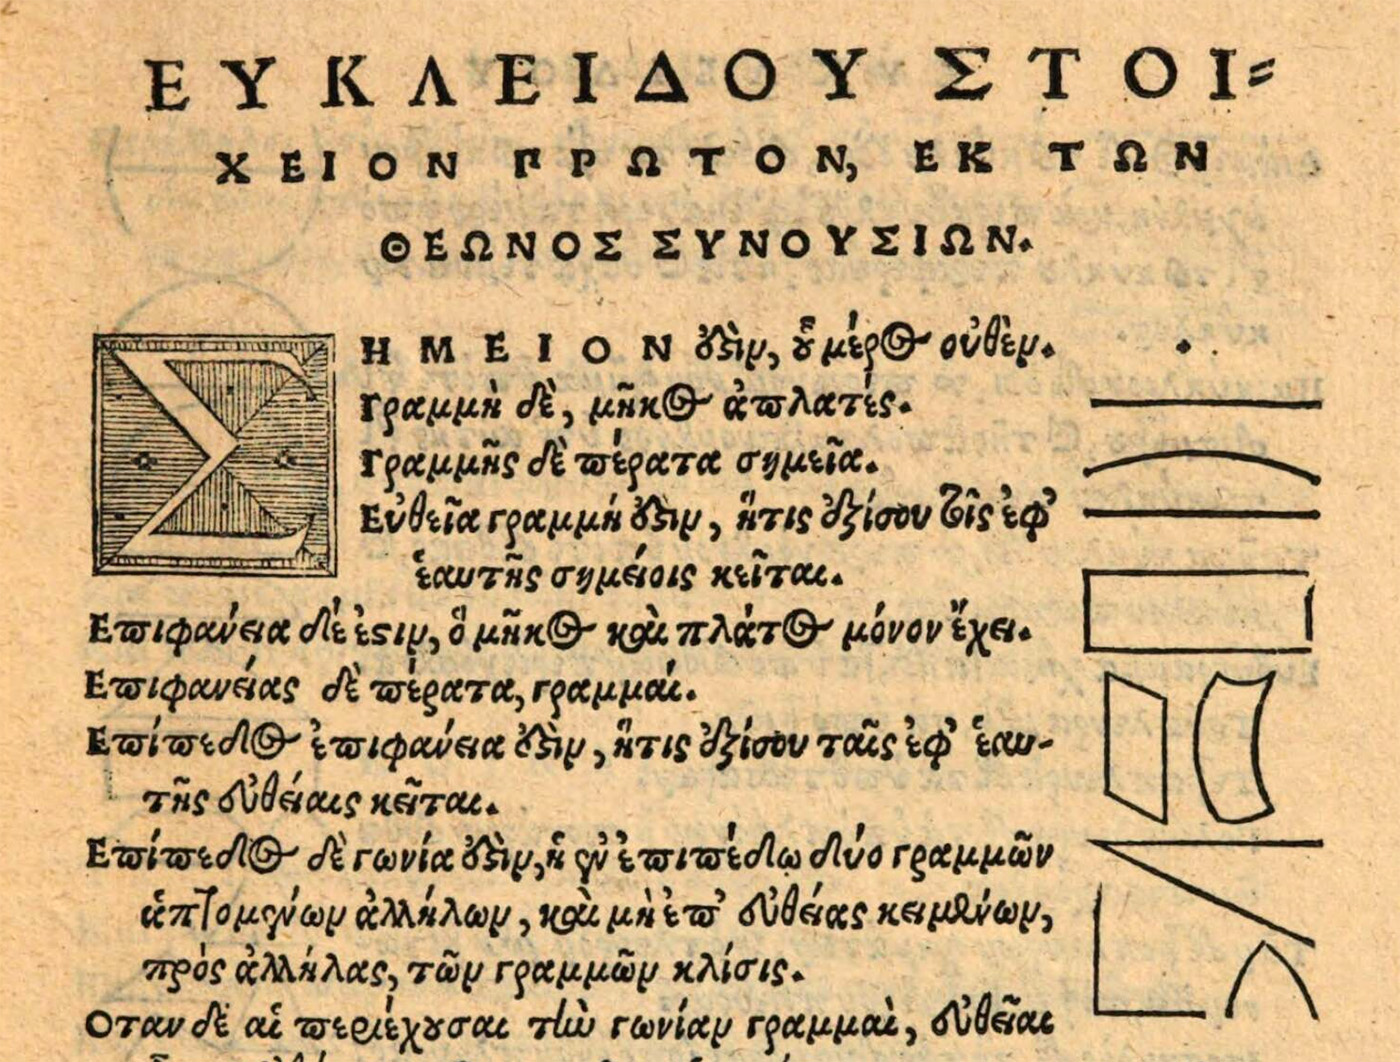 ΕΥΚΛΕΙΔΟΥ ΣΤΟΙ=
ΧΕΙΟΝ ΠΡΩΤΟΝ, ΕΚ ΤΩΝ
ΘΕΩΝΟΣ ΣΥΝΟΥΣΙΩΝ.
ΣΗΜΕΙΟΝ ὅϛὶν, οὗ μέρος οὐθὲν.
Γραμμὴ δὲ, μῆκος ἀπλατές.
Γραμμῆς δὲ πέρατα σημεῖα.
Εὐθεῖα γραμμή ἐϛιν, ἥτις ἐξίσου τοῖς ἐφ'
ἑαυτῆς σημείοις κεῖται.
Επιφάνεια δέ ἐϛιν, ὃ μῆκος καὶ πλάτος μόνον ἔχει.
Επιφανείας δὲ πέρατα, γραμμαί.
Επίπεδος ἐπιφάνεια ἐϛὶν, ἥτις ἐξίσου ταῖς ἐφ' ἑαυ-
τῆς εὐθείαις κεῖται.
Επίπεδος δὲ γωνία ἐϛὶν, ἡ ἐν ἐπιπέδῳ δύο γραμμῶν
ἁπτομένων ἀλλήλων, καὶ μὴ ἐπ' εὐθείας κειμένων,
πρὸς ἀλλήλας, τῶν γραμμῶν κλίσις.
Οταν δὲ αἱ περιέχουσαι τὴν γωνίαν γραμμαὶ, εὐθεῖαι